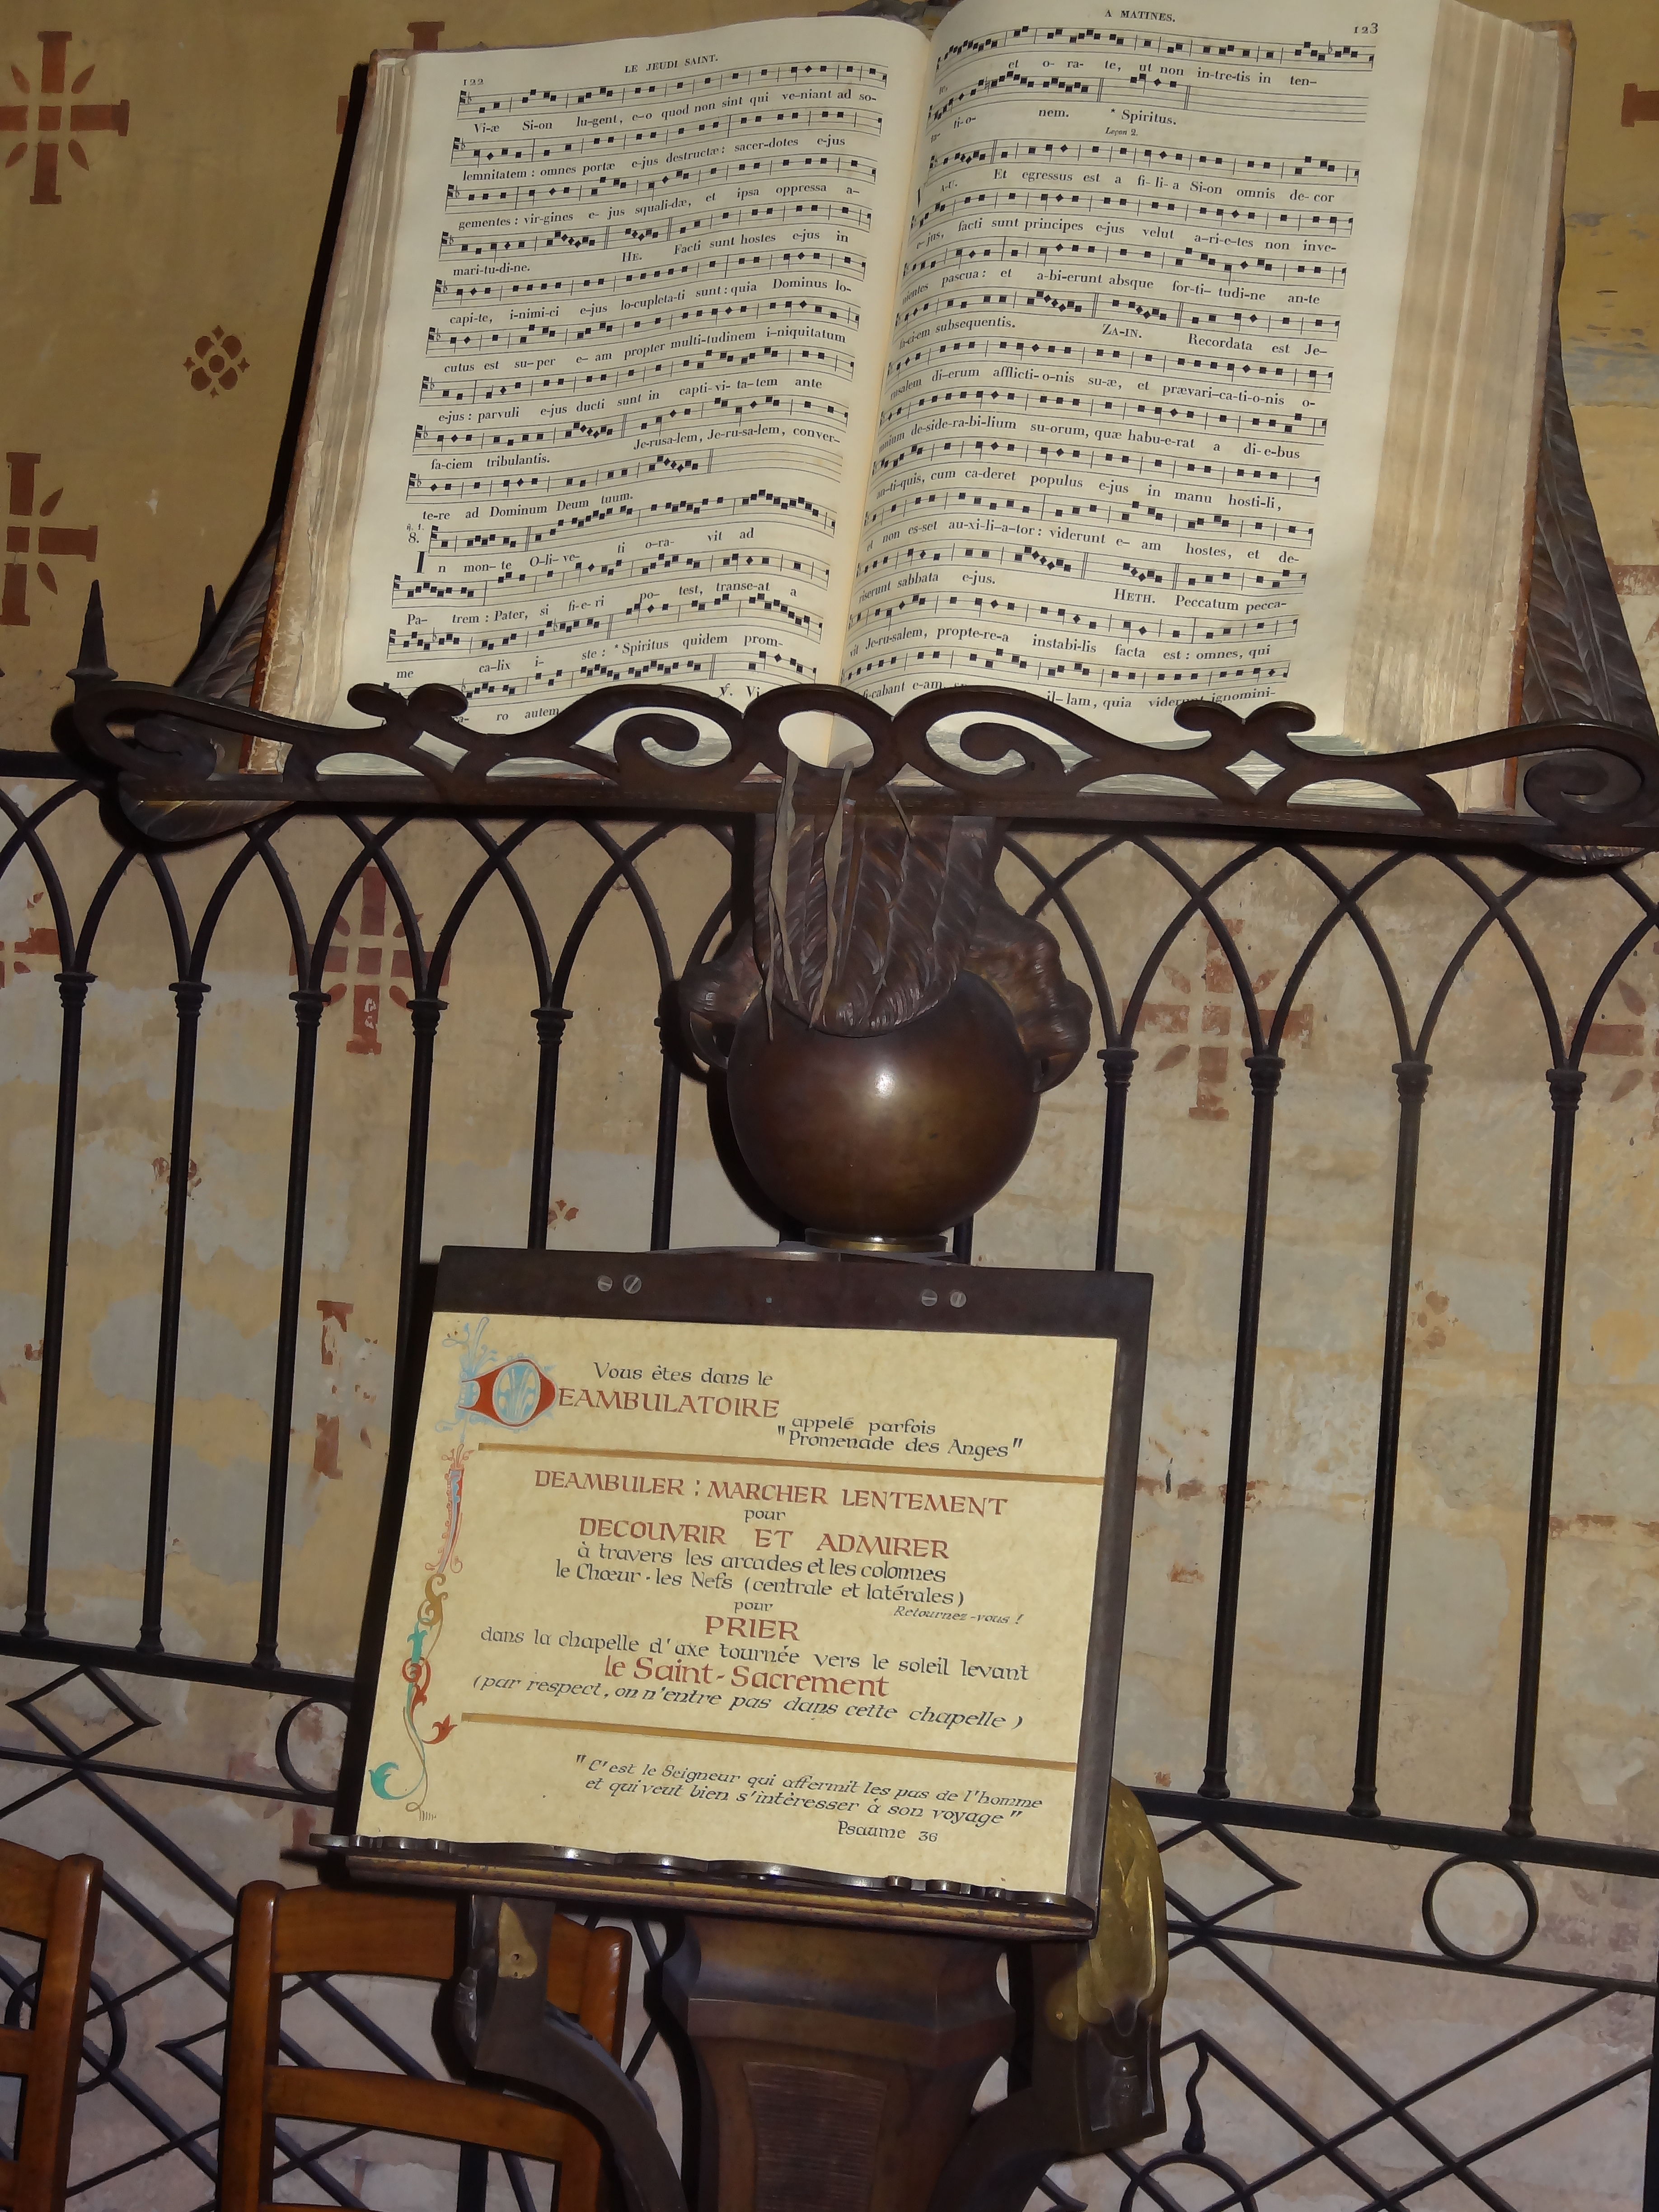 122
LE JEUDI SAINT.
Vi-æ Si-on lu-gent, e-o quod non sint qui ve-niant ad so-
lemnitatem : omnes portæ e-jus destructæ: sacer-dotes e-jus
gementes : vir-gines e- jus squali-dæ, et ipsa oppressa a-
mari-tu-di-ne. HE. Facti sunt hostes e-jus in
capi-te, i-nimi-ci e-jus lo-cupleta-ti sunt : quia Dominus lo-
cutus est su-per e- am propter multi-tudinem i-niquitatum
e-jus : parvuli e-jus ducti sunt in capti-vi- ta-tem ante
fa-ciem tribulantis. Je-rusa-lem, Je-ru-sa-lem, conver-
te-re ad Dominum Deum tuum.
8.
In mon- te O-li- ve- ti o-ra- vit ad
Pa- trem : Pater, si fi-e-ri po- test, transe-at a
me ca-lix i- ste : * Spiritus quidem prom-
ro autem
A MATINES.
123
et o- ra- te, ut non in-tre-tis in ten-
ti-o- nem. * Spiritus.
Leçon 2.
Et egressus est a fi- li- a Si-on omnis de- cor
e-jus, facti sunt principes e-jus velut a-ri-e-tes non inve-
nientes pascua : et a-bi-erunt absque for-ti- tudi-ne an-te
fa-ci-em subsequentis. ZA-IN. Recordata est Je-
rusalem di-erum afflicti-o-nis su-æ, et prævari-ca-ti-o-nis o-
mnium de-side-ra-bi-lium su-orum, quæ habu-e-rat a di- e-bus
an-ti-quis, cum ca-deret populus e-jus in manu hosti-li,
et non es-set au-xi-li-a-tor : viderunt e- am hostes, et de-
riserunt sabbata e-jus. HETH. Peccatum pecca-
vit Je-ru-salem, propte-re-a instabi-lis facta est : omnes, qui
fi-cabant e-am, il-lam, quia viderunt ignomini-
Vous êtes dans le
DEAMBULATOIRE
appelé parfois
"Promenade des Anges"
DEAMBULER : MARCHER LENTEMENT
pour
DECOUVRIR ET ADMIRER
à travers les arcades et les colonnes
le Chœur - les Nefs (centrale et latérales)
Retournez-vous !
pour
PRIER
dans la chapelle d'axe tournée vers le soleil levant
le Saint-Sacrement
(par respect, on n'entre pas dans cette chapelle)
"C'est le Seigneur qui affermit les pas de l'homme
et qui veut bien s'intéresser à son voyage"
Psaume 36